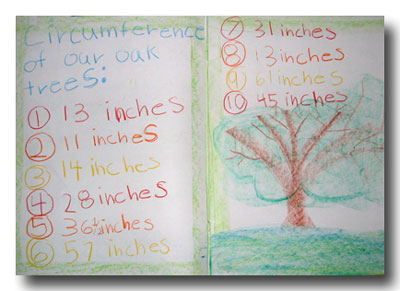 Circumference
of our oak
trees:
① 13 inches
② 11 inches
③ 14 inches
④ 28 inches
⑤ 36½ inches
⑥ 57 inches
⑦ 31 inches
⑧ 13 inches
⑨ 61 inches
⑩ 45 inches